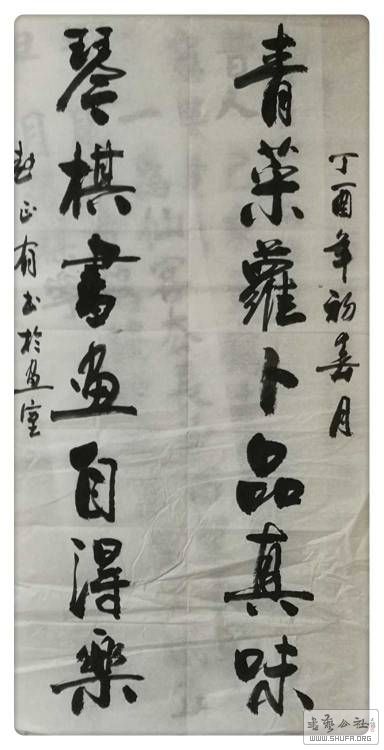 丁酉年初春月
青菜蘿卜品真味
琴棋書畫自得樂
正有书於畫室
书艺公社
WWW.SHUFA.ORG